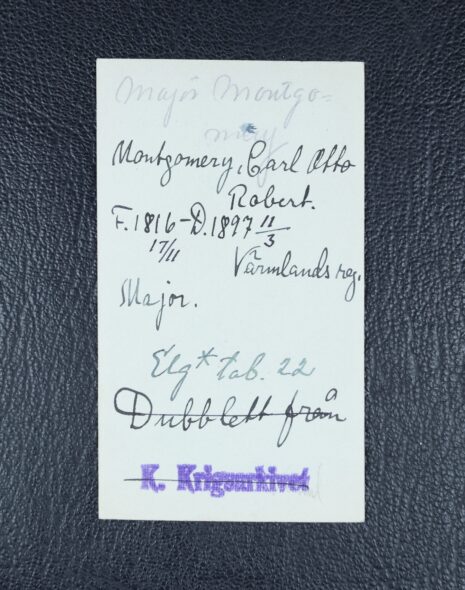 Major Montgo-
mery
Montgomery, Carl Otto
Robert.
F. 1816 – D. 1897 11/3
17/11
Värmlands reg.
Major.
Elg* tab. 22
Dubblett från
K. Krigsarkivet